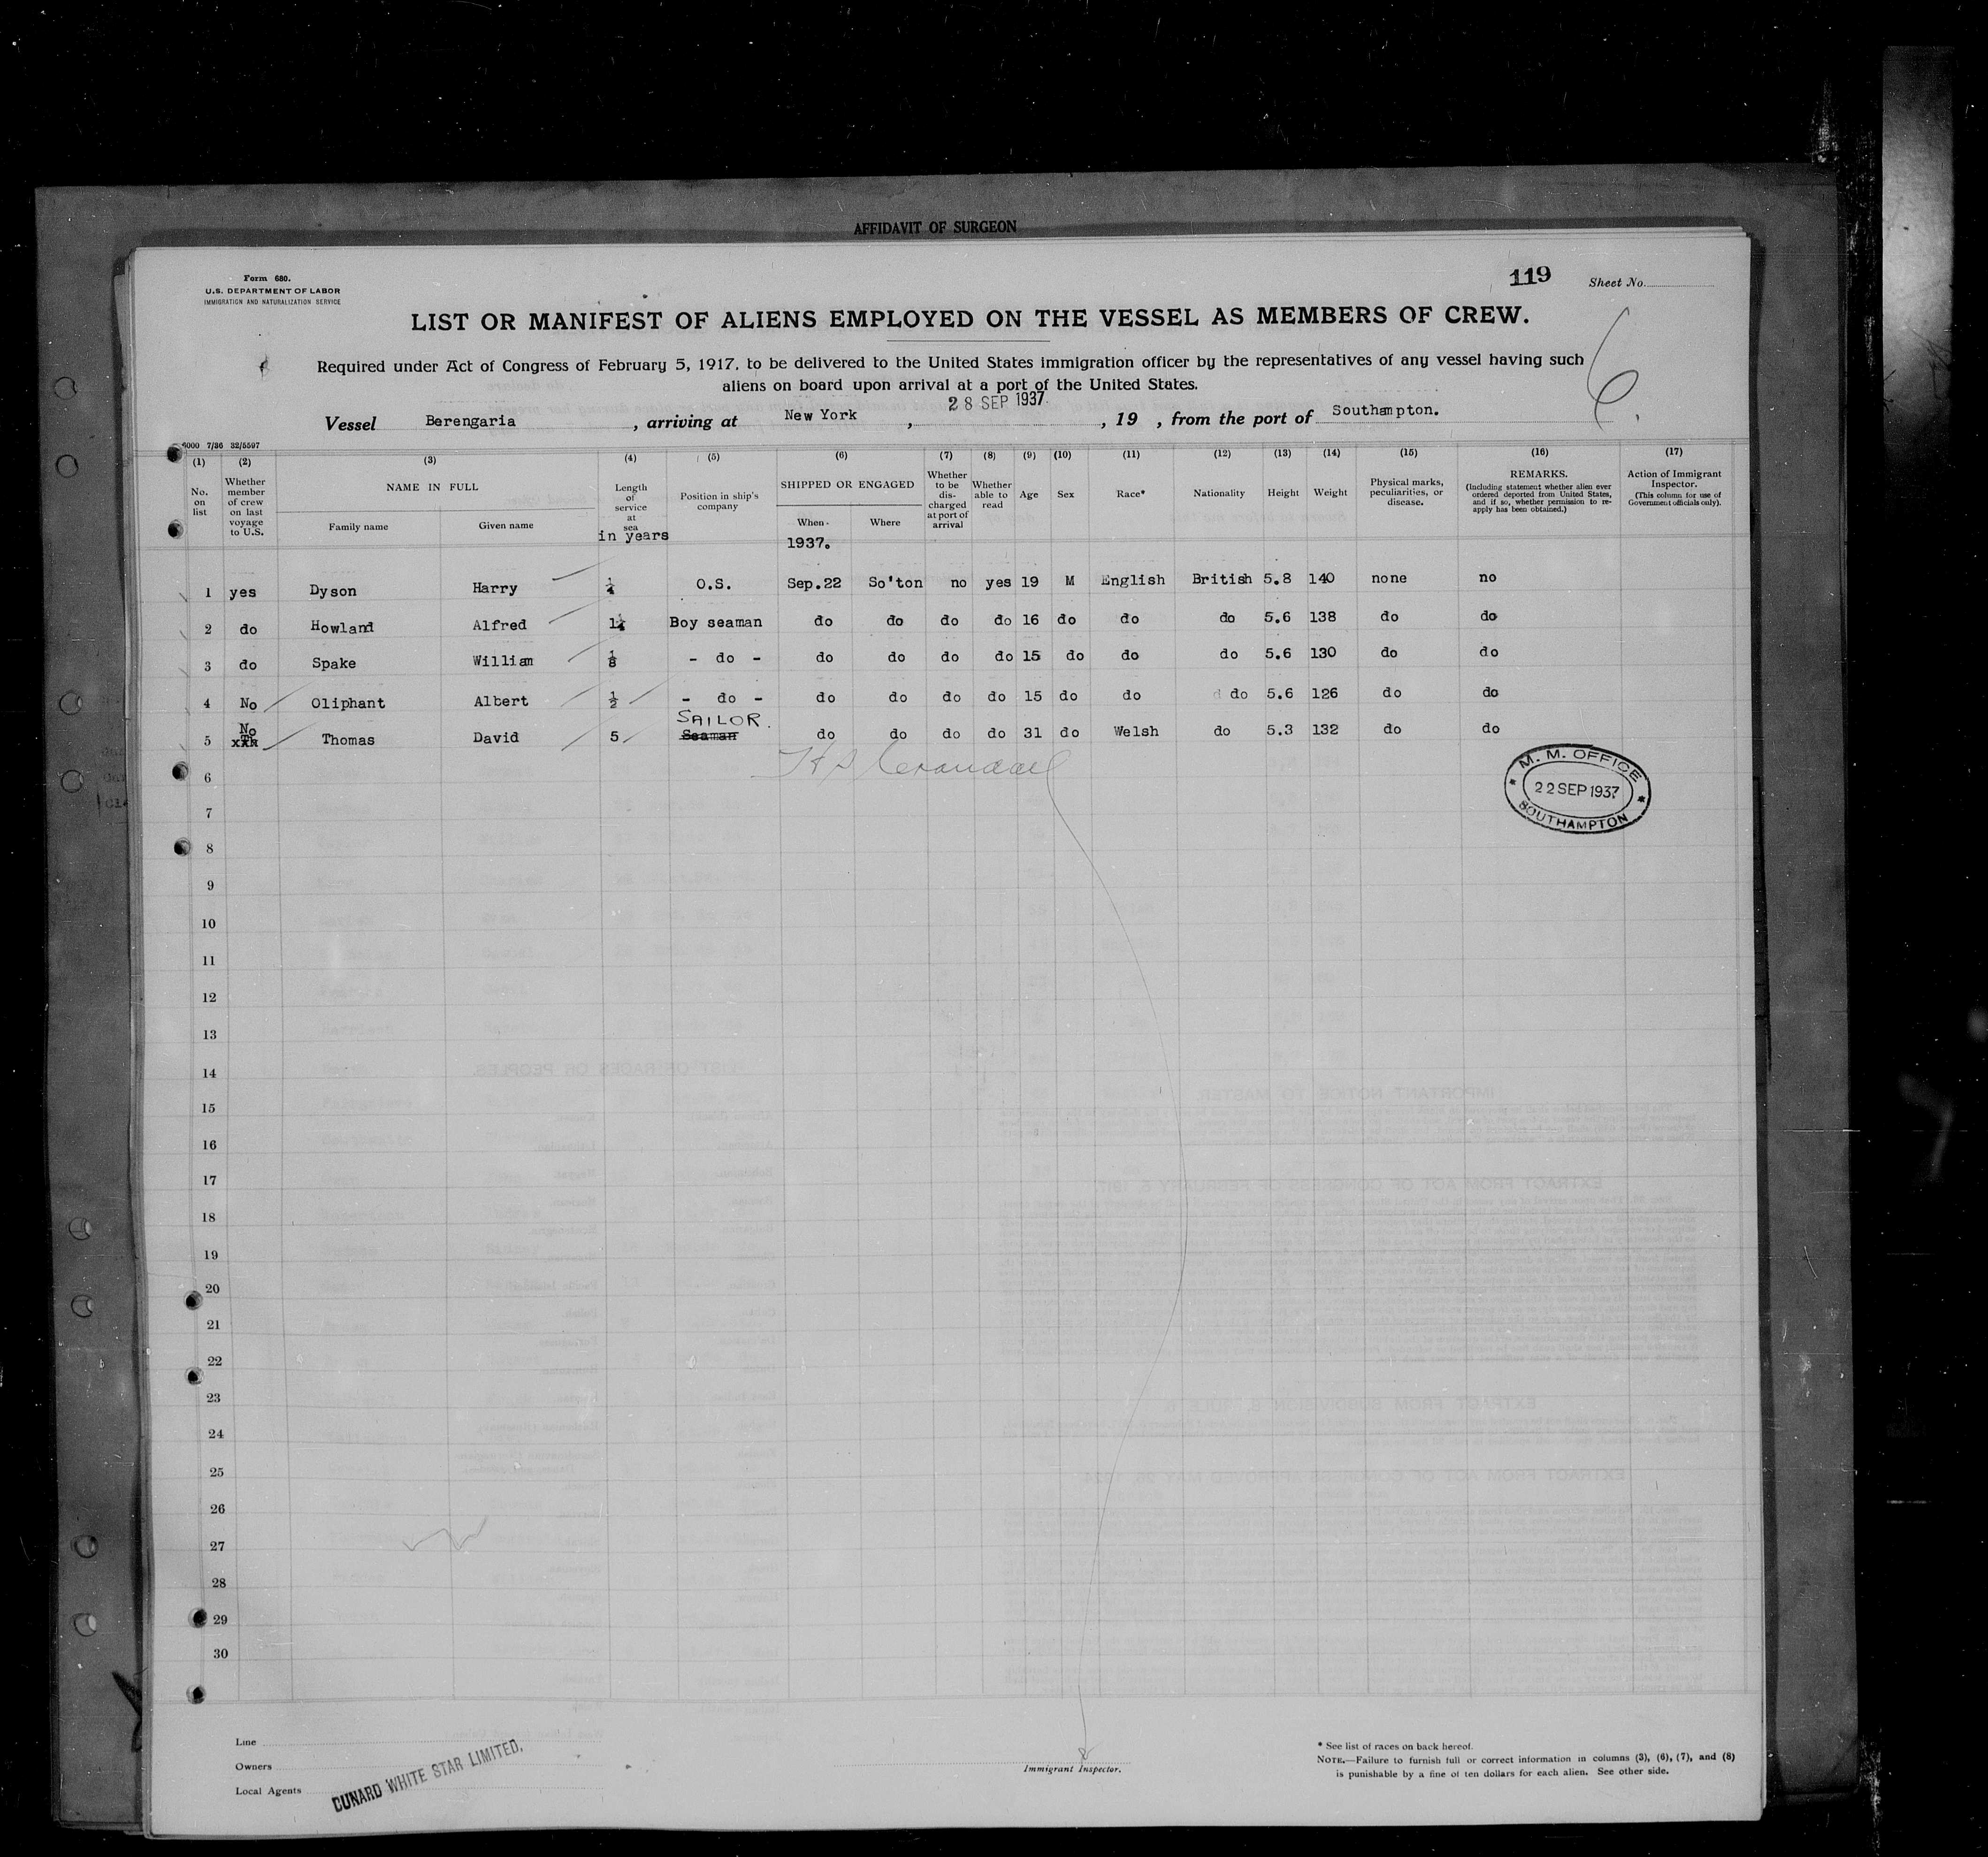 AFFIDAVIT OF SURGEON
Form 680.
U.S. DEPARTMENT OF LABOR
IMMIGRATION AND NATURALIZATION SERVICE
119 Sheet No.
LIST OR MANIFEST OF ALIENS EMPLOYED ON THE VESSEL AS MEMBERS OF CREW.
Required under Act of Congress of February 5, 1917, to be delivered to the United States immigration officer by the representatives of any vessel having such
aliens on board upon arrival at a port of the United States.
6.
Vessel Berengaria, arriving at New York, 28 SEP 1937, 19 , from the port of Southampton.
6000 7/36 32/5597
(1) (2) (3) (4) (5) (6) (7) (8) (9) (10) (11) (12) (13) (14) (15) (16) (17)
No. on list
Whether member of crew on last voyage to U.S.
NAME IN FULL
Family name Given name
Length of service at sea
in years
Position in ship's company
SHIPPED OR ENGAGED
When Where
1937.
Whether to be discharged at port of arrival
Whether able to read
Age
Sex
Race*
Nationality
Height
Weight
Physical marks, peculiarities, or disease.
REMARKS.
(Including statement whether alien ever ordered deported from United States, and if so, whether permission to reapply has been obtained.)
Action of Immigrant Inspector.
(This column for use of Government officials only).
1 yes Dyson Harry ¼ O.S. Sep.22 So'ton no yes 19 M English British 5.8 140 none no
2 do Howland Alfred 1¼ Boy seaman do do do do 16 do do do 5.6 138 do do
3 do Spake William ⅛ - do - do do do do 15 do do do 5.6 130 do do
4 No Oliphant Albert ½ - do - do do do do 15 do do do 5.6 126 do do
SAILOR.
5 No Thomas David 5 Seaman do do do do 31 do Welsh do 5.3 132 do do
M. M. OFFICE
22 SEP 1937
SOUTHAMPTON
6
7
8
9
10
11
12
13
14
15
16
17
18
19
20
21
22
23
24
25
26
27
28
29
30
Line
Owners
Local Agents
CUNARD WHITE STAR LIMITED.
Immigrant Inspector.
* See list of races on back hereof.
NOTE.—Failure to furnish full or correct information in columns (3), (6), (7), and (8)
is punishable by a fine of ten dollars for each alien. See other side.